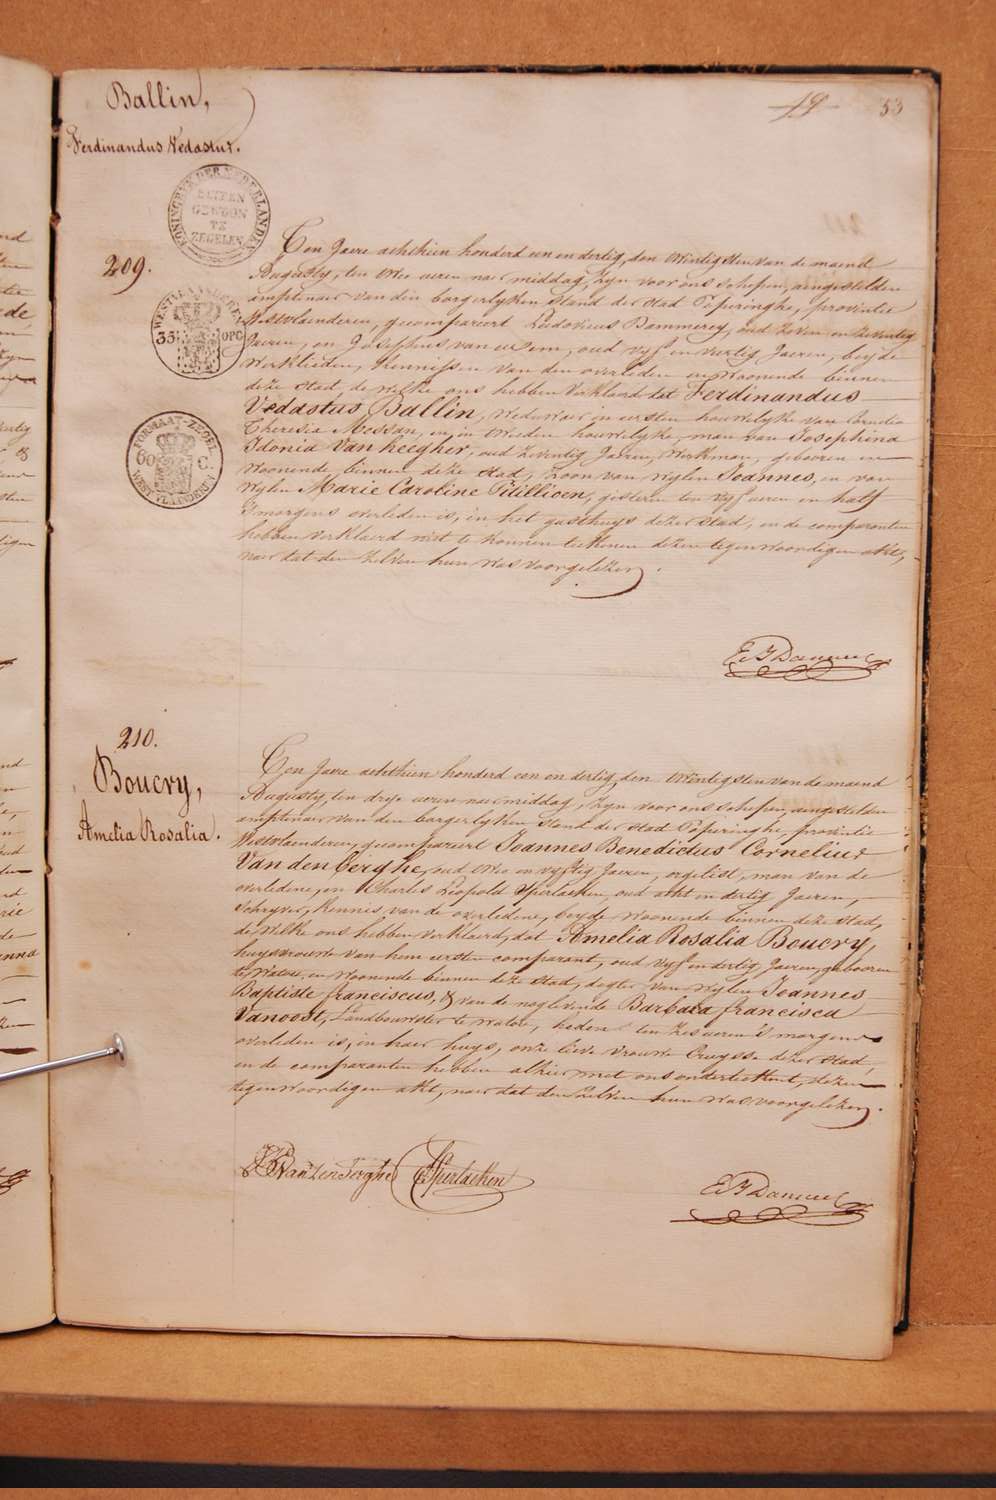 Ballin,
Ferdinandus Vedastus.
19
53
KONINGRYK DER NEDERLANDEN
BUITEN
GEWOON
TE
ZEGELEN
209.
WESTVLAANDEREN
35 OPC
FORMAAT-ZEGEL
60 C.
WEST VLAANDEREN
Ten Jaere achthien honderd een en dertig, den twintigsten van de maend
Augusty, ten twee ueren naer middag, zyn voor ons schepen, aengestelden
amptenaer van den borgerlyken stand der stad Poperinghe, provintie
Westvlaenderen, gecompareert Ludovicus Dammerey, oud zeven en twintig
Jaeren, en Josephus van uxem, oud vyf en veertig Jaeren, beyde
Werklieden, Kennissen van den overleden en woonende binnen
deze stad, de welke ons hebben verklaerd dat Ferdinandus
Vedastus Ballin, weduwaer in eersten houwelyke van Cornelia
Theresia Messan, en, in tweeden houwelyke, man van Josephina
Idonia Van keegher, oud zeventig Jaeren, Werkman, geboren en
woonende binnen deze stad, zoon van wylen Joannes, en van
wylen Marie Caroline Pitillioen, gisteren ten vyf ueren en half
's morgens overleden is, in het gasthuys dezer stad, en de comparanten
hebben verklaerd niet te konnen teekenen dezen tegenwoordigen akte,
naer dat den zelven hun was voorgelezen.
210.
Boucry,
Amelia Rosalia.
Ten Jaere achthien honderd een en dertig, den twintigsten van de maend
Augusty, ten drije ueren naer middag, zyn voor ons schepen, aengestelden
amptenaer van den borgerlyken stand der stad Poperinghe, provintie
Westvlaenderen, gecompareert Joannes Benedictus Cornelius
Van den berghe, oud twee en vyftig Jaeren, orgelist, man van de
overledene, en Charles Leopold Spertaeken, oud acht en dertig Jaeren,
Schryver, Kennis van de overledene, beyde woonende binnen deze stad,
de welke ons hebben verklaerd, dat Amelia Rosalia Boucry,
huysvrouwe van hem eersten comparant, oud vyf en dertig Jaeren, gebooren
te Watou, en woonende binnen deze stad, dogter van wylen Joannes
Baptiste franciscus, & van de noglevende Barbara francisca
Vanoost, Landbouwster te watou, heden ten zes ueren 's morgens
overleden is, in haer huys, onze lieve vrouwe Cruysse dezer stad,
en de comparanten hebben alhier met ons onderteekent, dezen
tegenwoordigen akte, naer dat den zelven hun was voorgelezen.
Van den berghe
Spertaeken